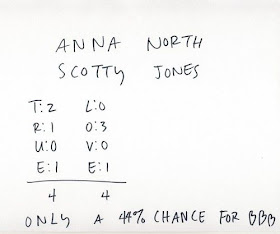 ANNA NORTH
SCOTTY JONES
T:2 L:0
R:1 O:3
U:0 V:0
E:1 E:1
4 4
ONLY A 44% CHANCE FOR BBB